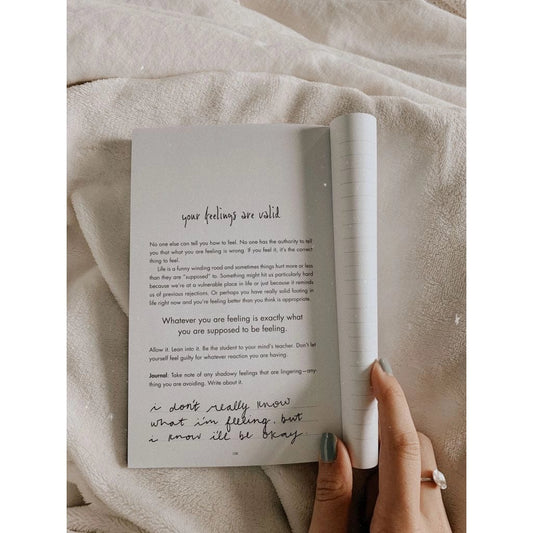 your feelings are valid
No one else can tell you how to feel. No one has the authority to tell
you that what you are feeling is wrong. If you feel it, it's the correct
thing to feel.
Life is a funny winding road and sometimes things hurt more or less
than they are "supposed" to. Something might hit us particularly hard
because we're at a vulnerable place in life or just because it reminds
us of previous rejections. Or perhaps you have really solid footing in
life right now and you're feeling better than you think is appropriate.
Whatever you are feeling is exactly what
you are supposed to be feeling.
Allow it. Lean into it. Be the student to your mind's teacher. Don't let
yourself feel guilty for whatever reaction you are having.
Journal: Take note of any shadowy feelings that are lingering—any-
thing you are avoiding. Write about it.
i don't really know
what i'm feeling. but
i know i'll be okay.